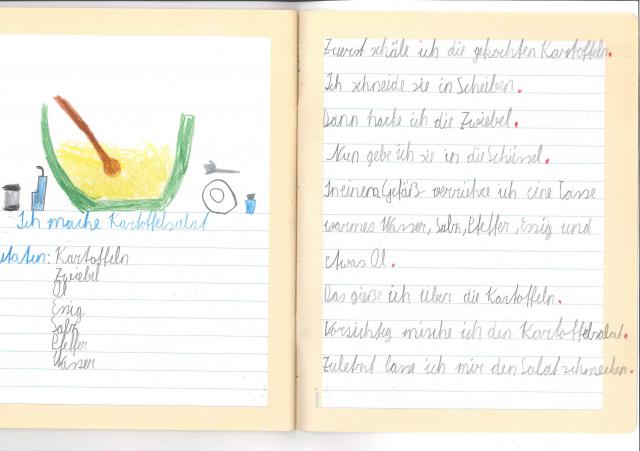 Ich mache Kartoffelsalat
utaten: Kartoffeln
Zwiebel
Öl
Essig
Salz
Pfeffer
Wasser
Zuerst schäle ich die gekochten Kartoffeln.
Ich schneide sie in Scheiben.
Dann hacke ich die Zwiebel.
Nun gebe ich sie in die Schüssel.
In einem Gefäß verrühre ich eine Tasse
warmes Wasser, Salz, Pfeffer, Essig und
etwas Öl.
Das gieße ich über die Kartoffeln.
Vorsichtig mische ich den Kartoffelsalat.
Zuletzt lasse ich mir den Salat schmecken.